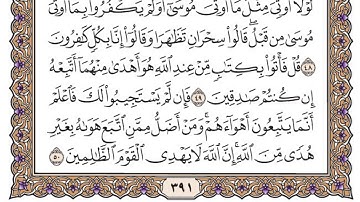 لَوۡلَآ أُوتِيَ مِثۡلَ مَآ أُوتِيَ مُوسَىٰٓۚ أَوَلَمۡ يَكۡفُرُواْ بِمَآ أُوتِيَ
مُوسَىٰ مِن قَبۡلُۖ قَالُواْ سِحۡرَانِ تَظَٰهَرَا وَقَالُوٓاْ إِنَّا بِكُلّٖ كَٰفِرُونَ
٤٨ قُلۡ فَأۡتُواْ بِكِتَٰبٖ مِّنۡ عِندِ ٱللَّهِ هُوَ أَهۡدَىٰ مِنۡهُمَآ أَتَّبِعۡهُ
إِن كُنتُمۡ صَٰدِقِينَ ٤٩ فَإِن لَّمۡ يَسۡتَجِيبُواْ لَكَ فَٱعۡلَمۡ
أَنَّمَا يَتَّبِعُونَ أَهۡوَآءَهُمۡۚ وَمَنۡ أَضَلُّ مِمَّنِ ٱتَّبَعَ هَوَىٰهُ بِغَيۡرِ
هُدٗى مِّنَ ٱللَّهِۚ إِنَّ ٱللَّهَ لَا يَهۡدِي ٱلۡقَوۡمَ ٱلظَّٰلِمِينَ ٥٠
٣٩١